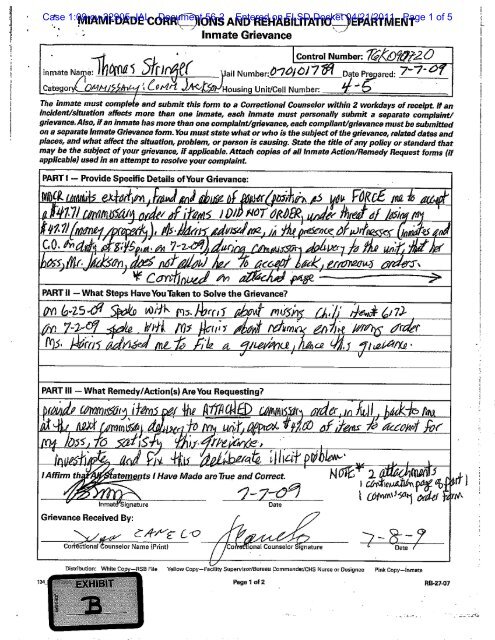 Case 1:09- Document 56-3 Entered on FLSD Docket 04/21/2011 Page 1 of 5
MIAMI-DADE CORRECTIONS AND REHABILITATION DEPARTMENT
Inmate Grievance
Control Number: TGK090720
Inmate Name: Thomas Stringer Jail Number: 070101789 Date Prepared: 7-7-09
Category Commissary: Comm. Jackson Housing Unit/Cell Number: 4-5
The inmate must complete and submit this form to a Correctional Counselor within 2 workdays of receipt. If an
incident/situation affects more than one inmate, each inmate must personally submit a separate complaint/
grievance. Also, if an inmate has more than one complaint/grievance, each compliant/grievance must be submitted
on a separate Inmate Grievance form. You must state what or who is the subject of the grievance, related dates and
places, and what affect the situation, problem, or person is causing. State the title of any policy or standard that
may be the subject of your grievance, if applicable. Attach copies of all Inmate Action/Remedy Request forms (if
applicable) used in an attempt to resolve your complaint.
PART I — Provide Specific Details of Your Grievance:
MDCR commits extortion, fraud and abuse of power/position as you FORCE me to accept
a $47.71 commissary order of items I DID NOT ORDER, under threat of losing my
$47.71 (money/property). Ms. Harris advised me, in the presence of witnesses (inmates and
C.O. on duty at 8:45 pm. on 7-2-09), during commissary delivery to the unit, that her
boss, Mr. Jackson, does not allow her to accept back, erroneous orders.
* Continued on attached page
PART II — What Steps Have You Taken to Solve the Grievance?
on 6-25-09 Spoke with Ms. Harris about missing chili item# 6172
on 7-2-09 spoke with Ms Harris about returning entire wrong order
Ms. Harris advised me to File a grievance, hence this grievance.
PART III — What Remedy/Action(s) Are You Requesting?
provide commissary items per the ATTACHED commissary order, in full, back to me
at the next commissary delivery to my unit, approx $47.00 of items to account for
my loss, to satisfy this grievance.
Investigate and Fix this deliberate illicit problem.
I Affirm that All Statements I Have Made are True and Correct.
NOTE * 2 attachments
1 continuation page of part I
1 commissary order form
7-7-09
Inmate Signature Date
Grievance Received By:
CANELO 7-8-9
Correctional Counselor Name (Print) Correctional Counselor Signature Date
Distribution: White Copy—RSB File Yellow Copy—Facility Supervisor/Bureau Commander/CHS Nurse or Designee Pink Copy—Inmate
Page 1 of 2 RB-27-07
EXHIBIT
B